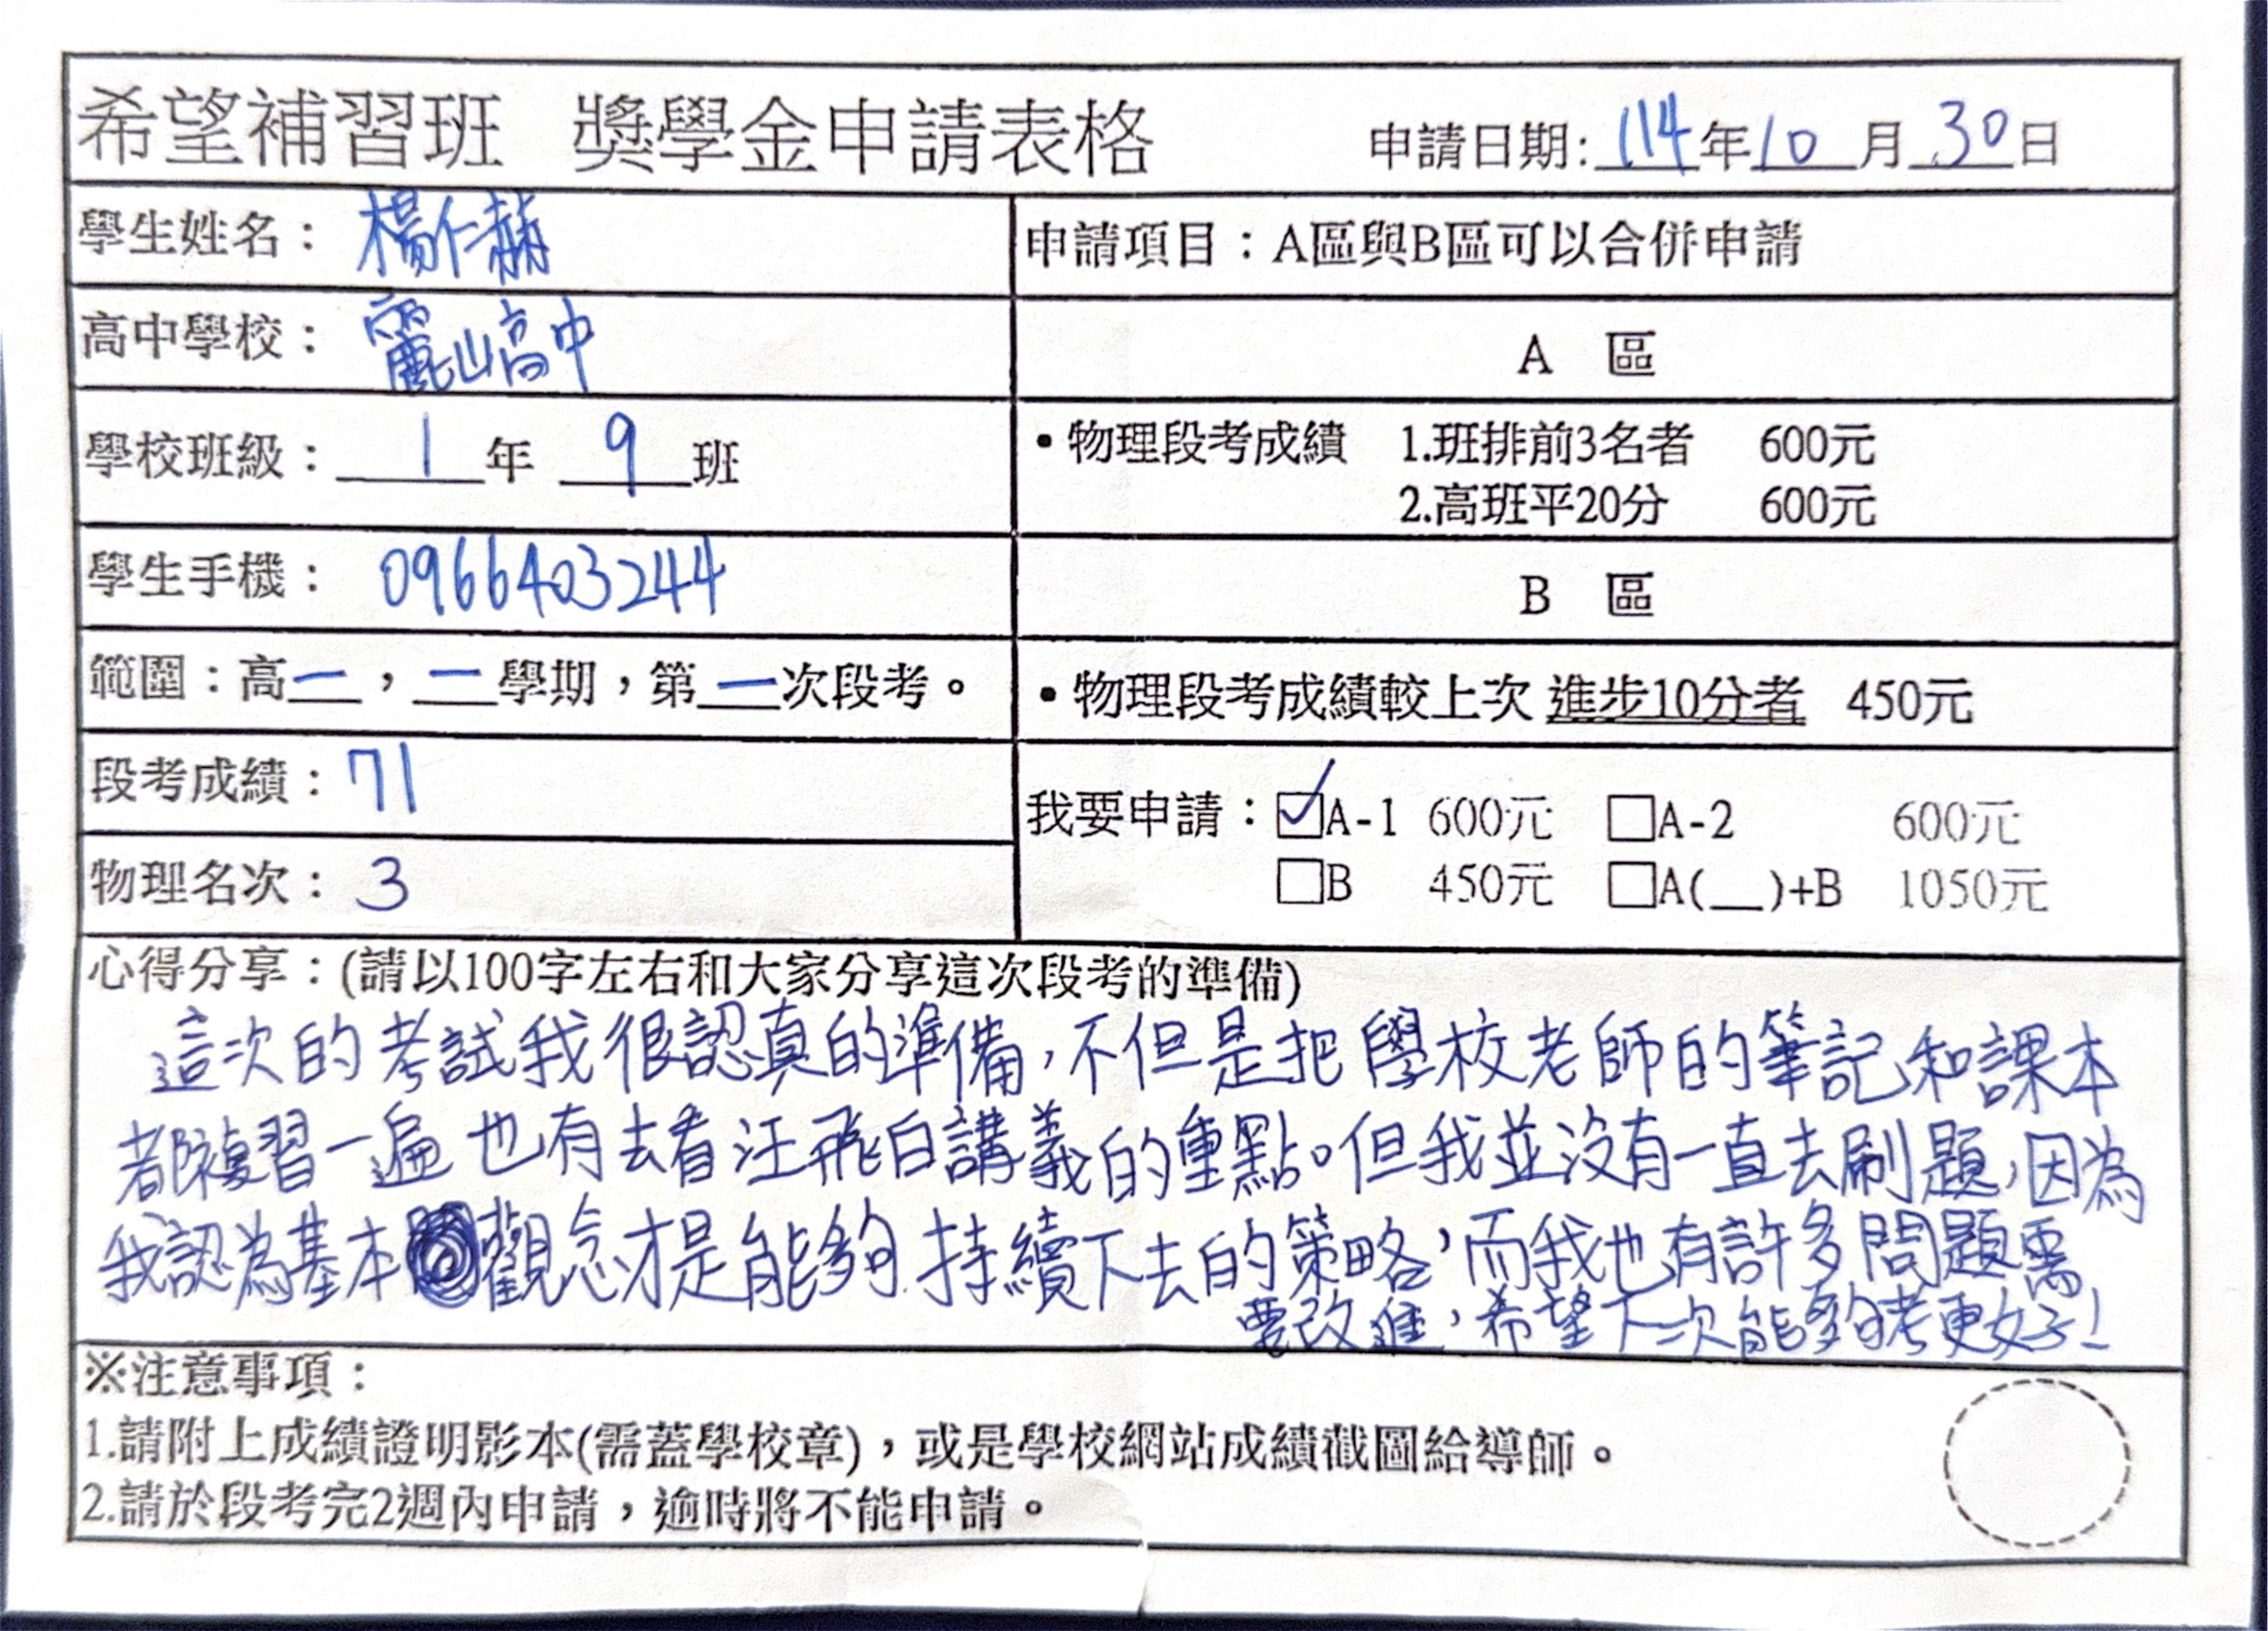 希望補習班 獎學金申請表格 申請日期:114年10月30日
學生姓名：楊仁赫
申請項目：A區與B區可以合併申請
高中學校：麗山高中
A 區
學校班級：1年9班
•物理段考成績 1.班排前3名者 600元
2.高班平20分 600元
學生手機：0966403244
B 區
範圍：高一，一學期，第一次段考。
•物理段考成績較上次 進步10分者 450元
段考成績：71
我要申請：☑A-1 600元 □A-2 600元
□B 450元 □A(__)+B 1050元
物理名次：3
心得分享：(請以100字左右和大家分享這次段考的準備)
這次的考試我很認真的準備，不但是把學校老師的筆記和課本
都複習一遍也有去看汪飛白講義的重點。但我並沒有一直去刷題，因為
我認為基本觀念才是能夠持續下去的策略，而我也有許多問題需
要改進，希望下次能夠考更好！
※注意事項：
1.請附上成績證明影本(需蓋學校章)，或是學校網站成績截圖給導師。
2.請於段考完2週內申請，逾時將不能申請。